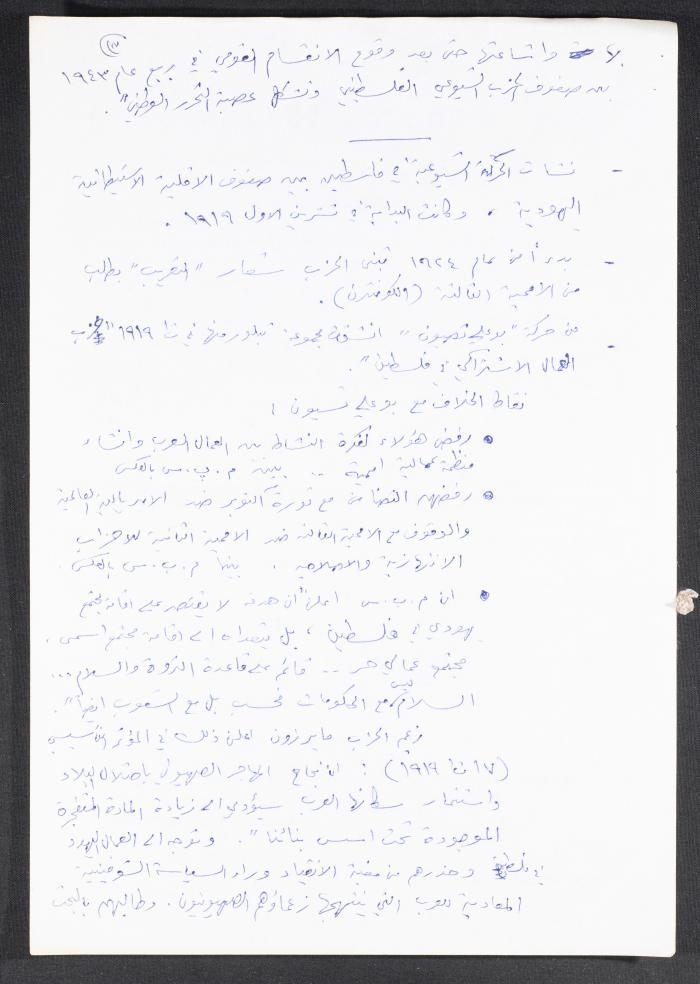 (١٣)
واشاعتها حتى بعد وقوع الانقسام القومي في ربيع عام ١٩٤٣
بين صفوف الحزب الشيوعي الفلسطيني وتشكل عصبة التحرر الوطني".
- نشأت الحركة الشيوعية في فلسطين بين صفوف الاقلية الاستيطانية
اليهودية ، وكانت البداية في تشرين الاول ١٩١٩ .
- بدءاً من عام ١٩٢٤ تبنى الحزب شعار "التعريب" بطلب
من الاممية الثالثة (الكومنترن).
- من حركة "بوعلي تسيون" انشقت مجموعة تبلور منها في ت١ ١٩١٩ "حزب
العمال الاشتراكي في فلسطين".
نقاط الخلاف مع بوعلي تسيون :
• رفض هؤلاء لفكرة النشاط بين العمال العرب وانشاء
منظمة عمالية اممية .. بينما م.ب.س بالعكس
• رفضهم التضامن مع ثورة اكتوبر ضد الامبريالية العالمية
والوقوف مع الاممية الثالثة ضد الاممية الثانية للاحزاب
الانتهازية والاصلاحية . بينما م.ب.س بالعكس.
• ان م.ب.س اعلن أن هدفه لا يقتصر على اقامة مجتمع
يهودي في فلسطين ، بل يتعداه الى اقامة مجتمع اسمى ،
مجتمع عمالي حر .. قائم على قاعدة الثروة والسلام ...
السلام ليس مع الحكومات فحسب بل مع الشعوب ايضاً".
زعيم الحزب مايرزون اعلن ذلك في المؤتمر التأسيسي
(١٧ ت١ ١٩١٩) : ان نجاح المهاجر الصهيوني باحتلال البلاد
واستثمار سكانها العرب سيؤدي الى زيادة المادة المتفجرة
الموجودة تحت اسس بنائنا". وتوجه الى العمال اليهود
في فلسطين وحذرهم من مغبة الانقياد وراء السياسة الشوفينية
المعادية للعرب التي ينتهجها زعماؤهم الصهيونيون. وطالبهم بالبحث